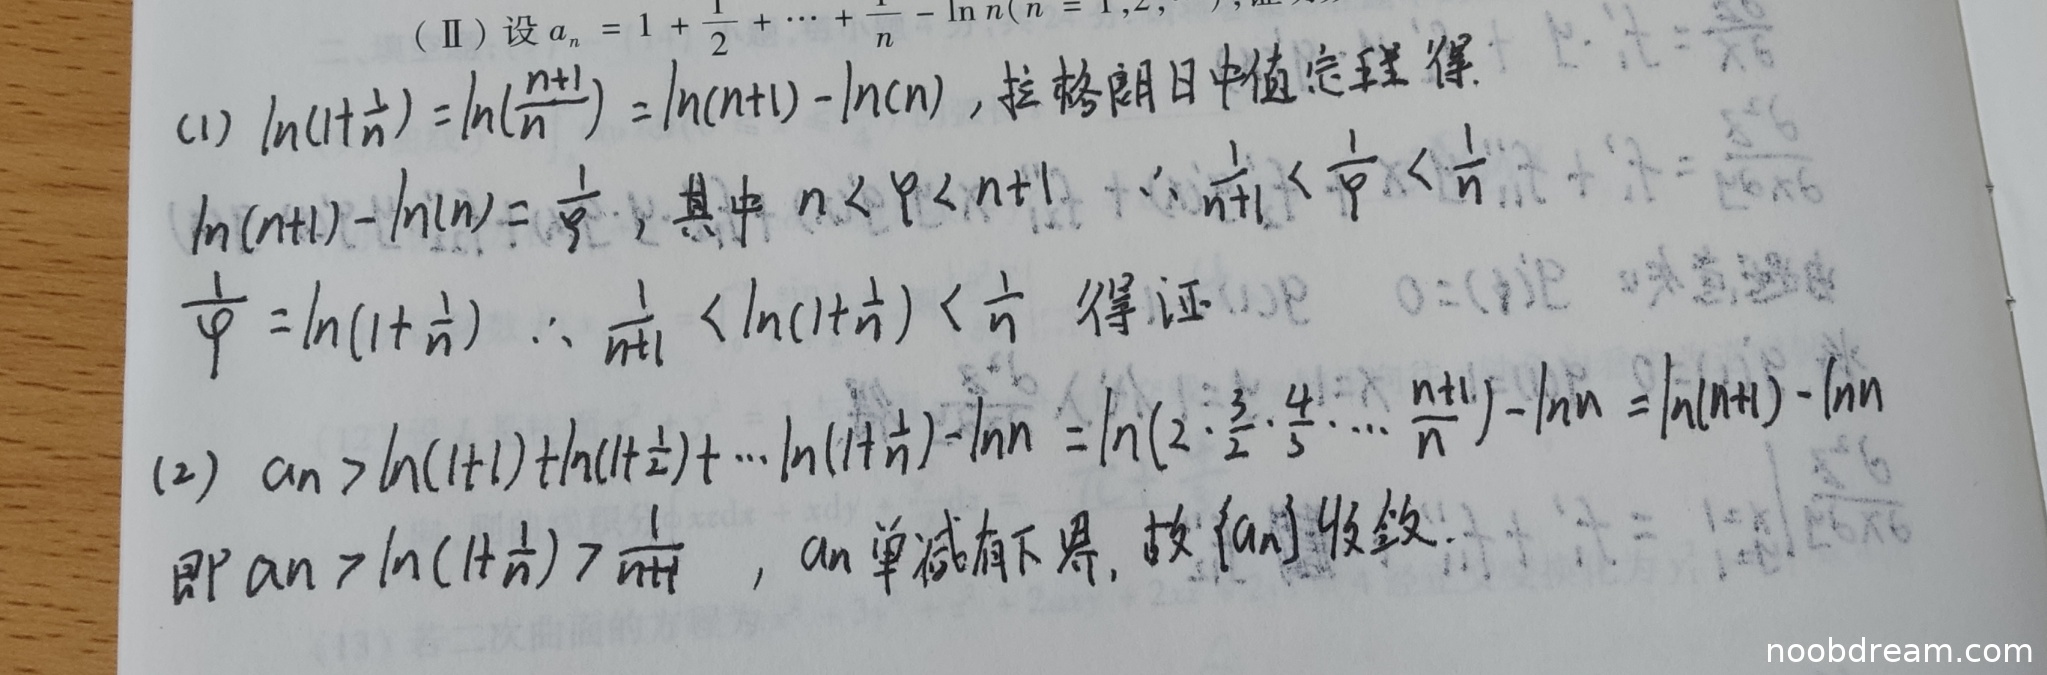 (Ⅱ)设 aₙ = 1 + 1/2 + ⋯ + 1/n − ln n(n = 1,2,
(1) ln(1+1/n) = ln(n+1/n) = ln(n+1) - ln(n) , 拉格朗日中值定理得.
ln(n+1) - ln(n) = 1/φ , 其中 n < φ < n+1 ∴ 1/n+1 < 1/φ < 1/n
1/φ = ln(1+1/n) ∴ 1/n+1 < ln(1+1/n) < 1/n 得证
(2) an > ln(1+1)+ln(1+1/2)+⋯ln(1+1/n)-lnn = ln(2·3/2·4/3·⋯ n+1/n)-lnn = ln(n+1)-lnn
即 an > ln(1+1/n) > 1/n+1 , an 单减有下界, 故{an}收敛.
noobdream.com